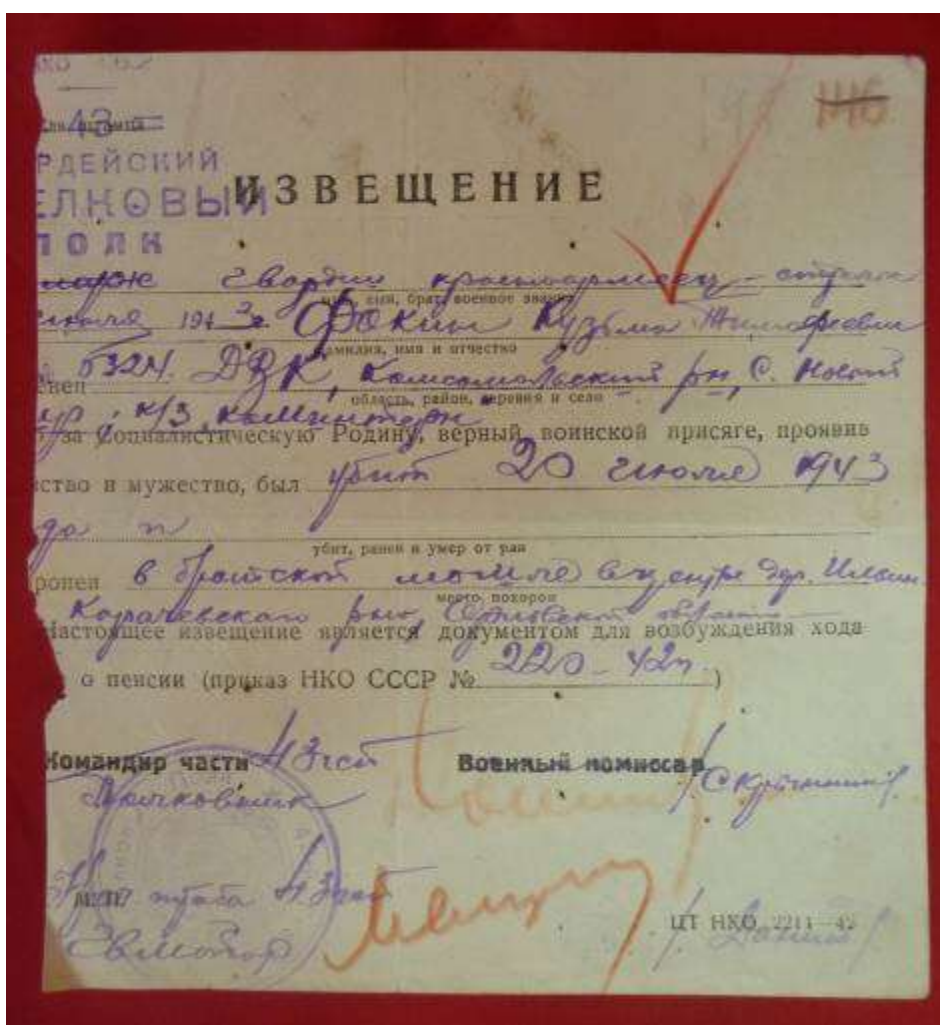 1116
43
РДЕЙСКИЙ
ЕЛКОВЫЙ
ПОЛК
ИЗВЕЩЕНИЕ
гвардии красноармеец - стрелок
сын, брат, военное звание
1943 г Фокин Кузьма Тимофеевич
фамилия, имя и отчество
ДВК, Комсомольский рн, С. Нослий
область, район, деревня и село
к/з, коминтерн
за Социалистическую Родину, верный воинской присяге, проявив
ство и мужество, был убит 20 июля 1943
да
убит, ранен и умер от ран
ронен в братской могиле в центре дер.
место похорон
Карачевского рна, Орловской области
Настоящее извещение является документом для возбуждения хода
о пенсии (приказ НКО СССР № 220-42г.)
Командир части 43 гсп
Военный комиссар
Полковник
штаба 43 гсп
ЦТ НКО 2211—42